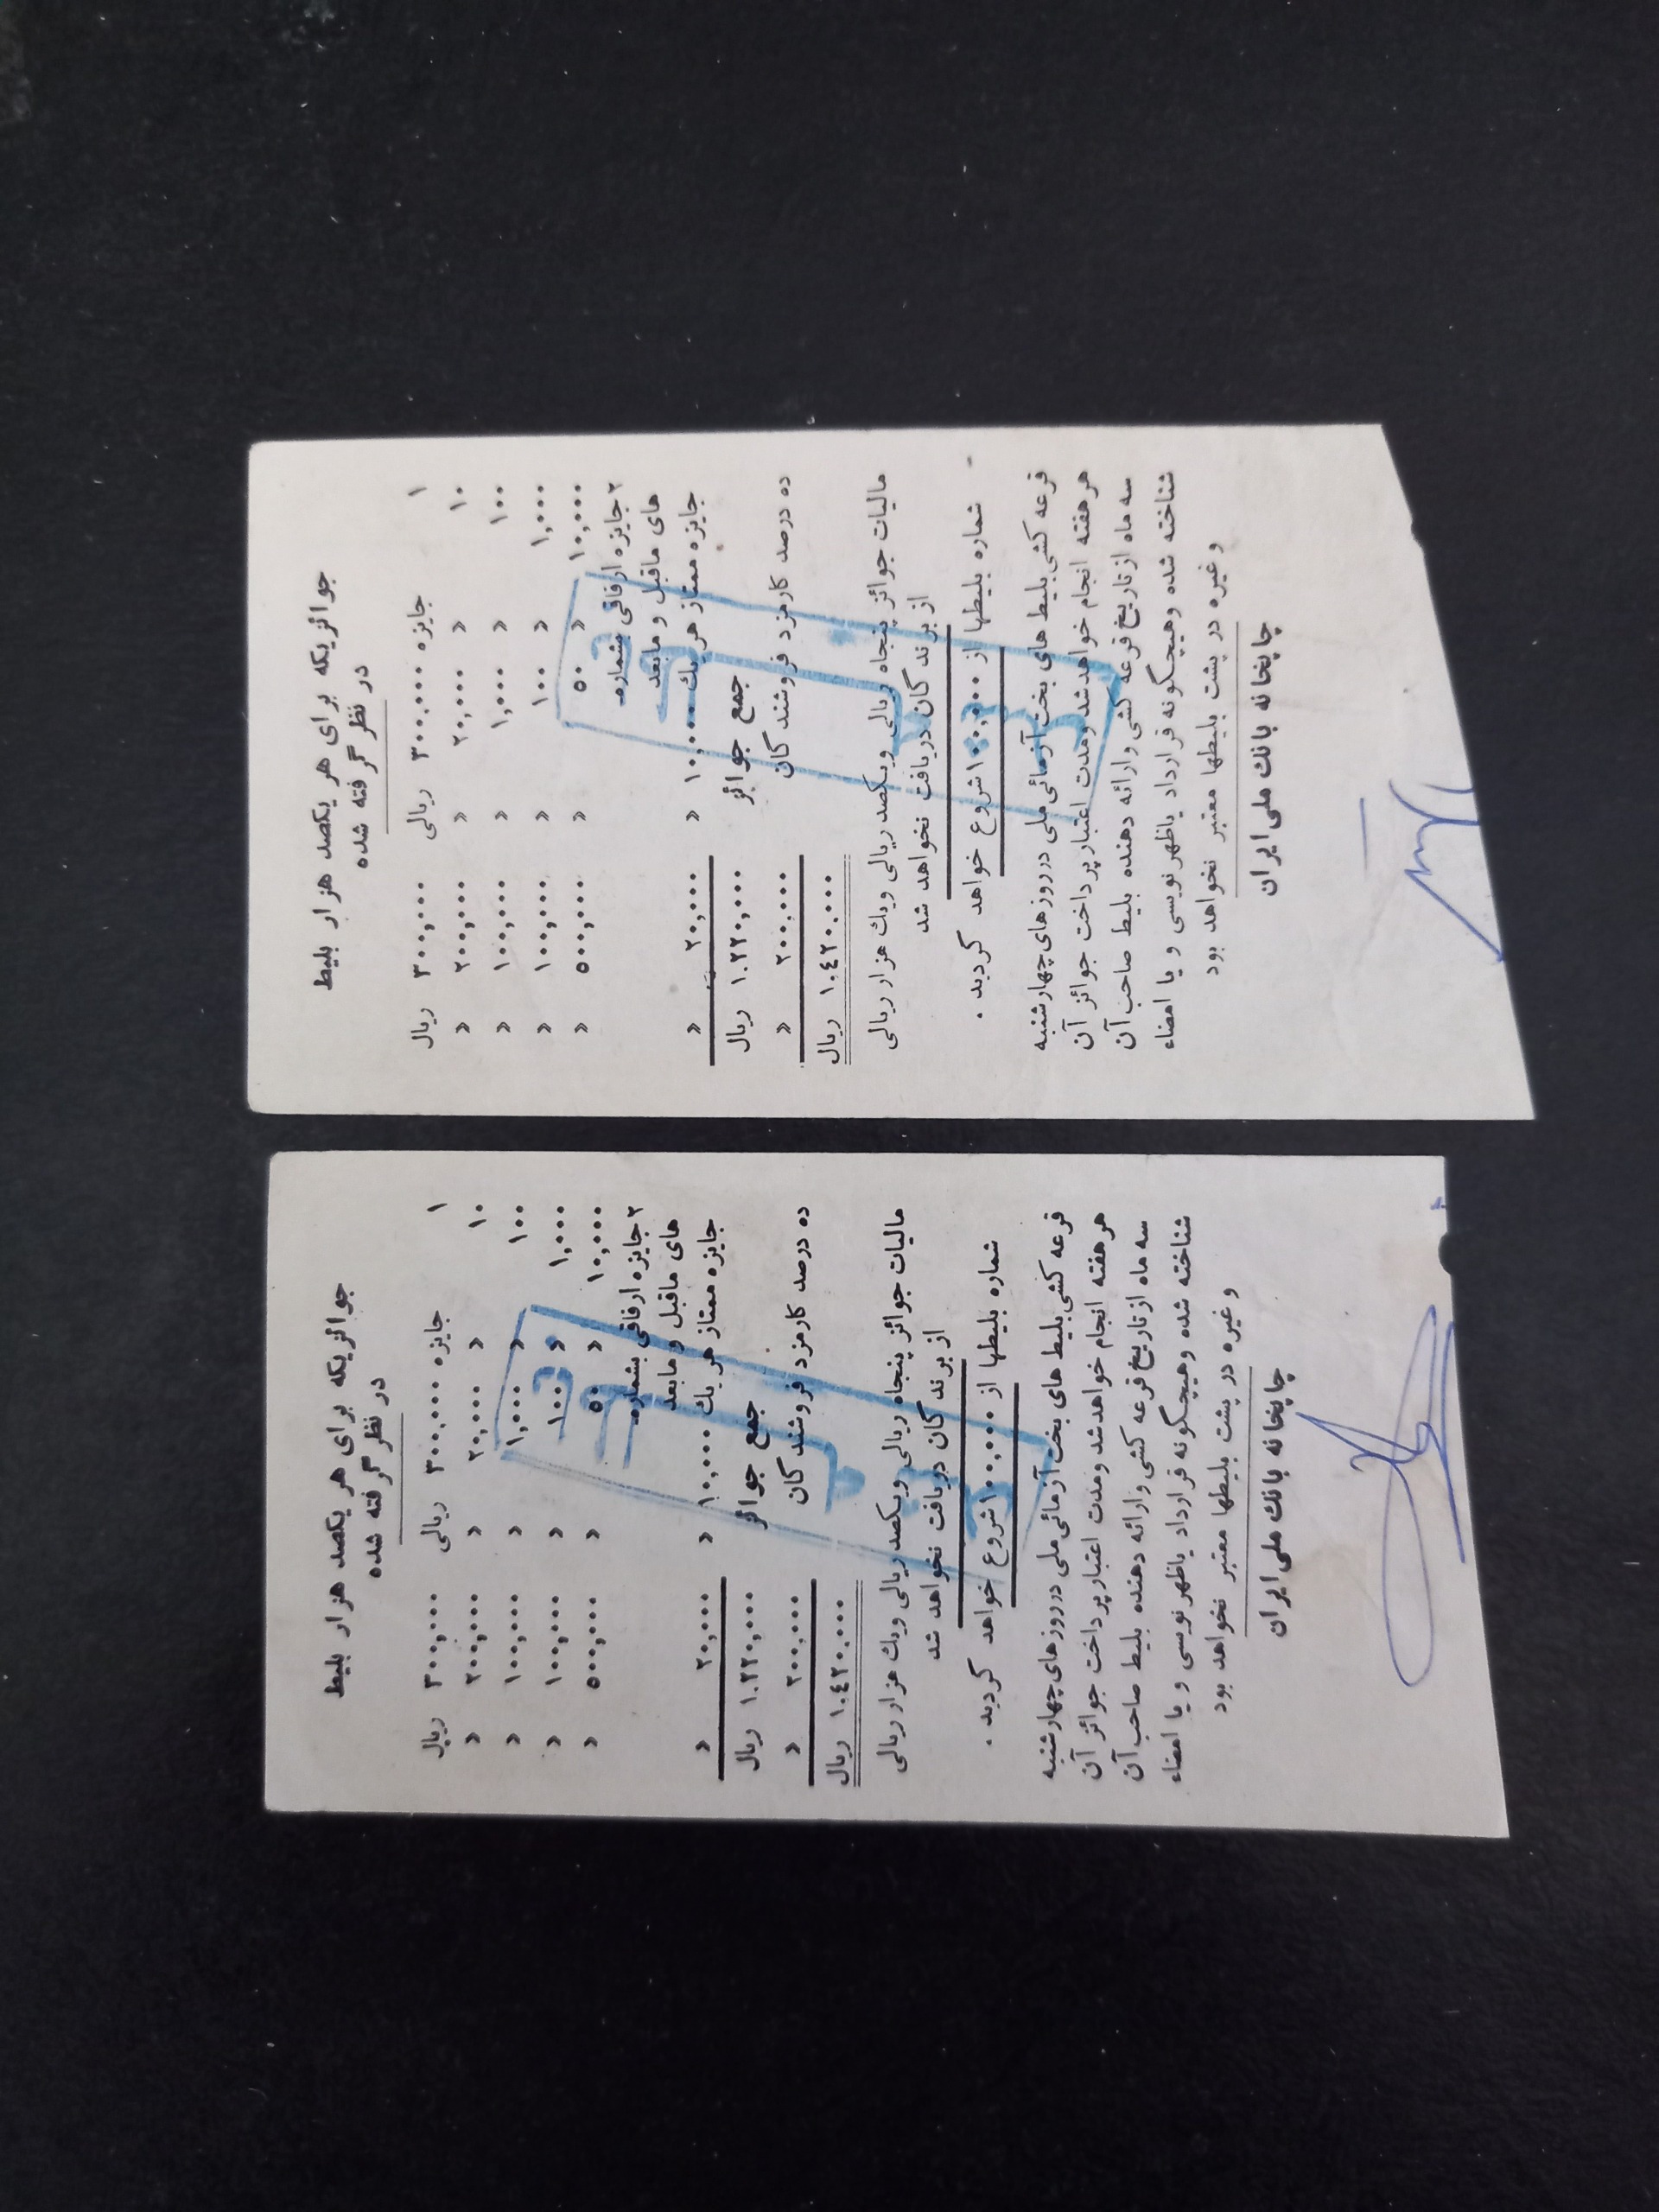 جوائزیکه برای هر یکصد هزار بلیط
در نظر گرفته شده
۱ جایزه ۳۰۰.۰۰۰ ریالی ۳۰۰,۰۰۰ ریال
۱۰ » ۲۰,۰۰۰ » ۲۰۰,۰۰۰ »
۱۰۰ » ۱,۰۰۰ » ۱۰۰,۰۰۰ »
۱,۰۰۰ » ۱۰۰ » ۱۰۰,۰۰۰ »
۱۰,۰۰۰ » ۵۰ » ۵۰۰,۰۰۰ »
۲ جایزه ارفاقی بشماره
های ماقبل و مابعد
جایزه ممتاز هر یك ۱۰,۰۰۰ » ۲۰,۰۰۰ »
جمع جوائز ۱.۲۲۰,۰۰۰ ریال
ده درصد کارمزد فروشندگان ۲۰۰.۰۰۰ »
۱.٤۲۰.۰۰۰ ریال
مالیات جوائز پنجاه ریالی ویکصد ریالی ویك هزار ریالی
از برندگان دریافت نخواهد شد
شماره بلیطها از ۱۰۰,۰۰۰ شروع خواهد گردید .
قرعه کشی بلیط های بخت آزمائی ملی درروزهای چهارشنبه
هرهفته انجام خواهدشد ومدت اعتبار پرداخت جوائز آن
سه ماه ازتاریخ قرعه کشی وارائه دهنده بلیط صاحب آن
شناخته شده وهیچگونه قرارداد یاظهرنویسی و یا امضاء
وغیره در پشت بلیطها معتبر نخواهد بود
چاپخانه بانك ملی ایران
جوائزیکه برای هر یکصد هزار بلیط
در نظر گرفته شده
۱ جایزه ۳۰۰.۰۰۰ ریالی ۳۰۰,۰۰۰ ریال
۱۰ » ۲۰,۰۰۰ » ۲۰۰,۰۰۰ »
۱۰۰ » ۱,۰۰۰ » ۱۰۰,۰۰۰ »
۱,۰۰۰ » ۱۰۰ » ۱۰۰,۰۰۰ »
۱۰,۰۰۰ » ۵۰ » ۵۰۰,۰۰۰ »
۲ جایزه ارفاقی بشماره
های ماقبل و مابعد
جایزه ممتاز هر یك ۱۰,۰۰۰ » ۲۰,۰۰۰ »
جمع جوائز ۱.۲۲۰,۰۰۰ ریال
ده درصد کارمزد فروشندگان ۲۰۰.۰۰۰ »
۱.٤۲۰.۰۰۰ ریال
مالیات جوائز پنجاه ریالی ویکصد ریالی ویك هزار ریالی
از برندگان دریافت نخواهد شد
شماره بلیطها از ۱۰۰,۰۰۰ شروع خواهد گردید .
قرعه کشی بلیط های بخت آزمائی ملی درروزهای چهارشنبه
هرهفته انجام خواهدشد ومدت اعتبار پرداخت جوائز آن
سه ماه ازتاریخ قرعه کشی وارائه دهنده بلیط صاحب آن
شناخته شده وهیچگونه قرارداد یاظهرنویسی و یا امضاء
وغیره در پشت بلیطها معتبر نخواهد بود
چاپخانه بانك ملی ایران